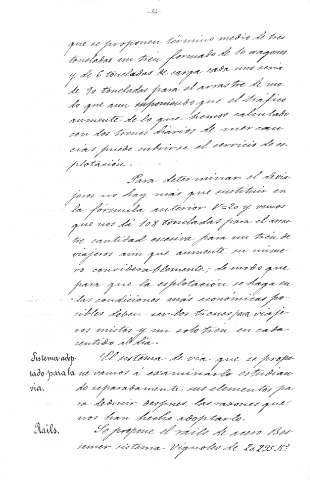 que se proponen término medio de tres
toneladas un tren formado de 10 wagones
y de 6 toneladas de carga cada uno seria
de 90 toneladas para el arrastre de mo
do que aun suponiendo que el tráfico
aumente de lo que hemos calculado
con dos trenes diarios de mercan
cias puede cubrirse el servicio de es
plotación.
Para determinar el de via
jeros no hay más que sustituir en
la fórmula anterior V=20 y vemos
que nos dá 108 toneladas para el
cantidad escesiva para un tren de
viajeros aun que aumente su núme
ro considerablemente; de modo que
para que la esplotación se haga en
las condiciones más económicas po
sibles deben ser los trenes para viaje
ros mistos y un solo tren en cada
sentido al dia.
Sistema adop
tado para la
via.
El sistema de via que se propo
ne vamos á examinarlo estudian
do separadamente sus elementos pa
ra deducir despues las razones que
nos han hecho adoptarlo.
Rails.
Se propone el rails de acero Bes
semer sistema Vignoles de